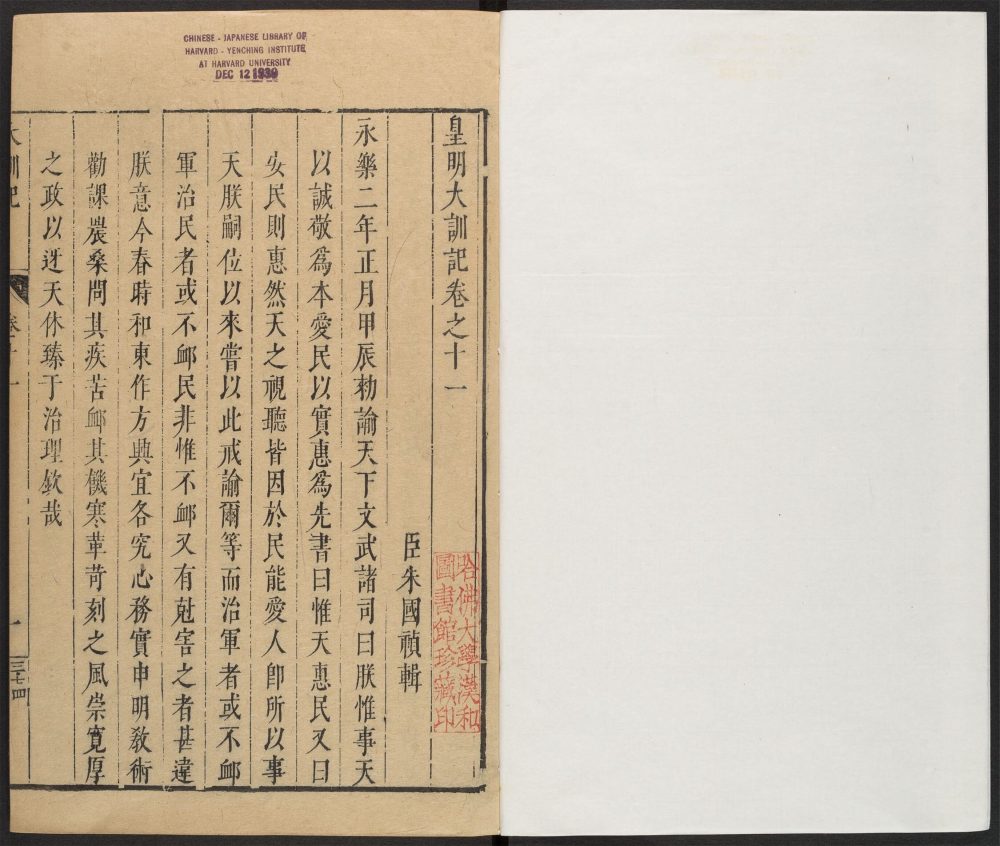 CHINESE - JAPANESE LIBRARY OF
HARVARD - YENCHING INSTITUTE
AT HARVARD UNIVERSITY
DEC 12 1939
皇明大訓記卷之十一
哈佛大學漢和
圖書館珍藏印
臣朱國禎輯
永樂二年正月甲辰勑諭天下文武諸司曰朕惟事天
以誠敬爲本愛民以實惠爲先書曰惟天惠民又曰
安民則惠然天之視聽皆因於民能愛人卽所以事
天朕嗣位以來嘗以此戒諭爾等而治軍者或不䘏
軍治民者或不䘏民非惟不䘏又有尅害之者甚違
朕意今春時和東作方興宜各究心務實申明敎術
勸課農桑問其疾苦䘏其機寒革苛刻之風崇寛厚
之政以迓天休臻于治理欽哉
大訓記
卷十一
一